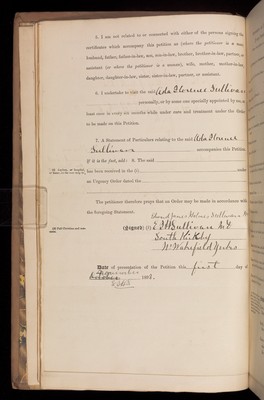 5. I am not related to or connected with either of the persons signing the
certificates which accompany this petition as (where the petitioner is a man)
husband, father, father-in-law, son, son-in-law, brother, brother-in-law, partner, or
assistant (or where the petitioner is a woman), wife, mother, mother-in-law,
daughter, daughter-in-law, sister, sister-in-law, partner, or assistant.
6. I undertake to visit the said Ada Florence Sullivan
personally, or by some one specially appointed by me, at
least once in every six months while under care and treatment under the Order
to be made on this Petition.
7. A Statement of Particulars relating to the said Ada Florence
Sullivan accompanies this Petition.
If it is the fact, add: 8. The said
has been received in the under
an Urgency Order dated the
The petitioner therefore prays that an Order may be made in accordance with
the foregoing Statement.
Edward James Holmes Sullivan
(Signed) E J H Sullivan
South Kirkby
Nr Wakefield Yorks
Date of presentation of the Petition this first day of
October